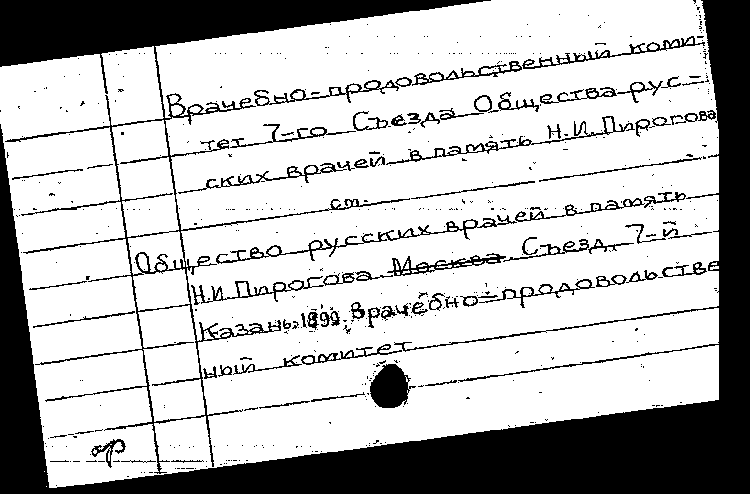 Врачебно-продовольственный коми-
тет 7-го Съезда Общества рус-
ских врачей в память Н.И.Пирогова
см.
Общество русских врачей в память
Н.И.Пирогова Москва Съезд, 7-й
Казань.1899. Врачебно-продовольстве
ный комитет
ор